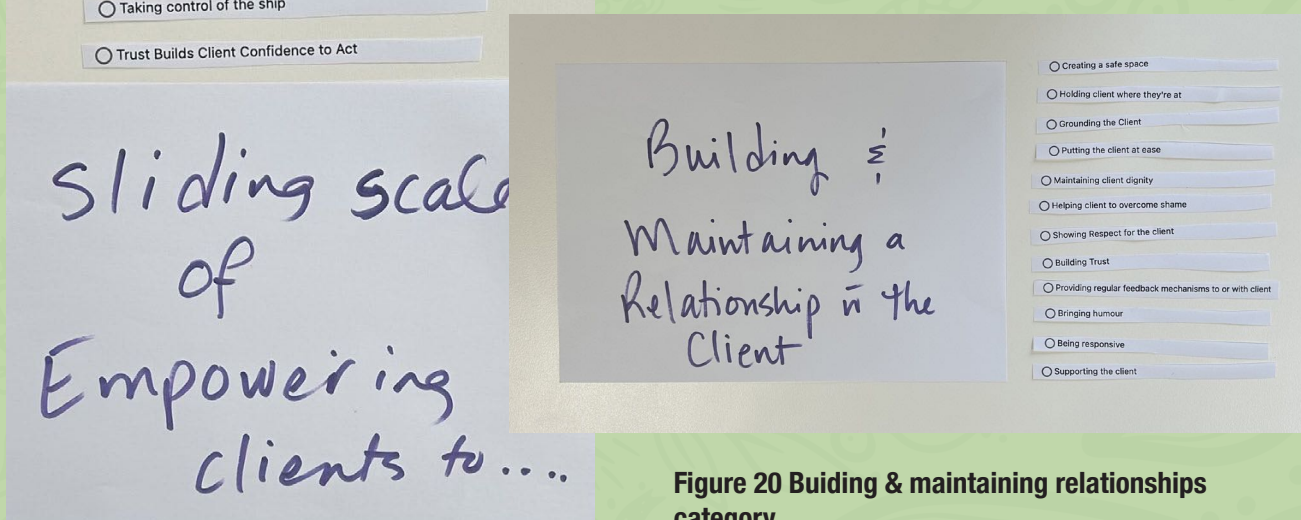 Taking control of the ship
Trust Builds Client Confidence to Act
Sliding scale
of
Empowering
clients to....
Building &
Maintaining a
Relationship w̄ the
Client
Creating a safe space
Holding client where they're at
Grounding the Client
Putting the client at ease
Maintaining client dignity
Helping client to overcome shame
Showing Respect for the client
Building Trust
Providing regular feedback mechanisms to or with client
Bringing humour
Being responsive
Supporting the client
Figure 20 Buiding & maintaining relationships
category